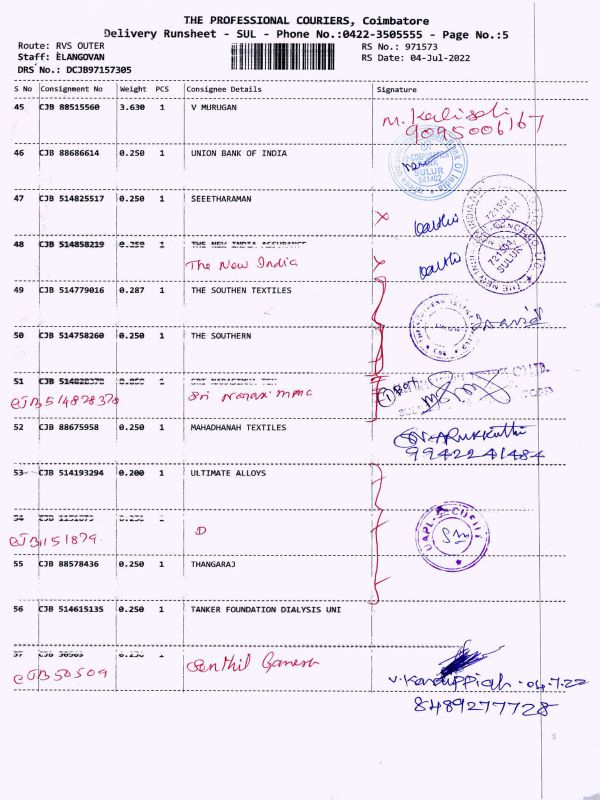 THE PROFESSIONAL COURIERS, Coimbatore
Delivery Runsheet - SUL - Phone No.:0422-3505555 - Page No.:5
Route: RVS OUTER RS No.: 971573
Staff: ELANGOVAN RS Date: 04-Jul-2022
DRS No.: DCJB97157305
S No Consignment No Weight PCS Consignee Details Signature
45 CJB 88515560 3.630 1 V MURUGAN
9095006167
46 CJB 88686614 0.250 1 UNION BANK OF INDIA
SULUR
641402
47 CJB 514825517 0.250 1 SEEETHARAMAN
721501
SULUR
48 CJB 514858219 0.250 1 THE NEW INDIA ASSURANCE
The New India
721501
SULUR
49 CJB 514779016 0.287 1 THE SOUTHEN TEXTILES
50 CJB 514758260 0.250 1 THE SOUTHERN
51 CJB 514828378 1
CJB514828378 Sri
52 CJB 88675958 0.250 1 MAHADHANAH TEXTILES
9942241484
53 CJB 514193294 0.200 1 ULTIMATE ALLOYS
UAPL-SECURITY
CJB1151879 D
55 CJB 88578436 0.250 1 THANGARAJ
56 CJB 514615135 0.250 1 TANKER FOUNDATION DIALYSIS UNI
57 CJB
CJB50509 Senthil Ganesh
V. Karuppiah - 04.7.22
8489277728